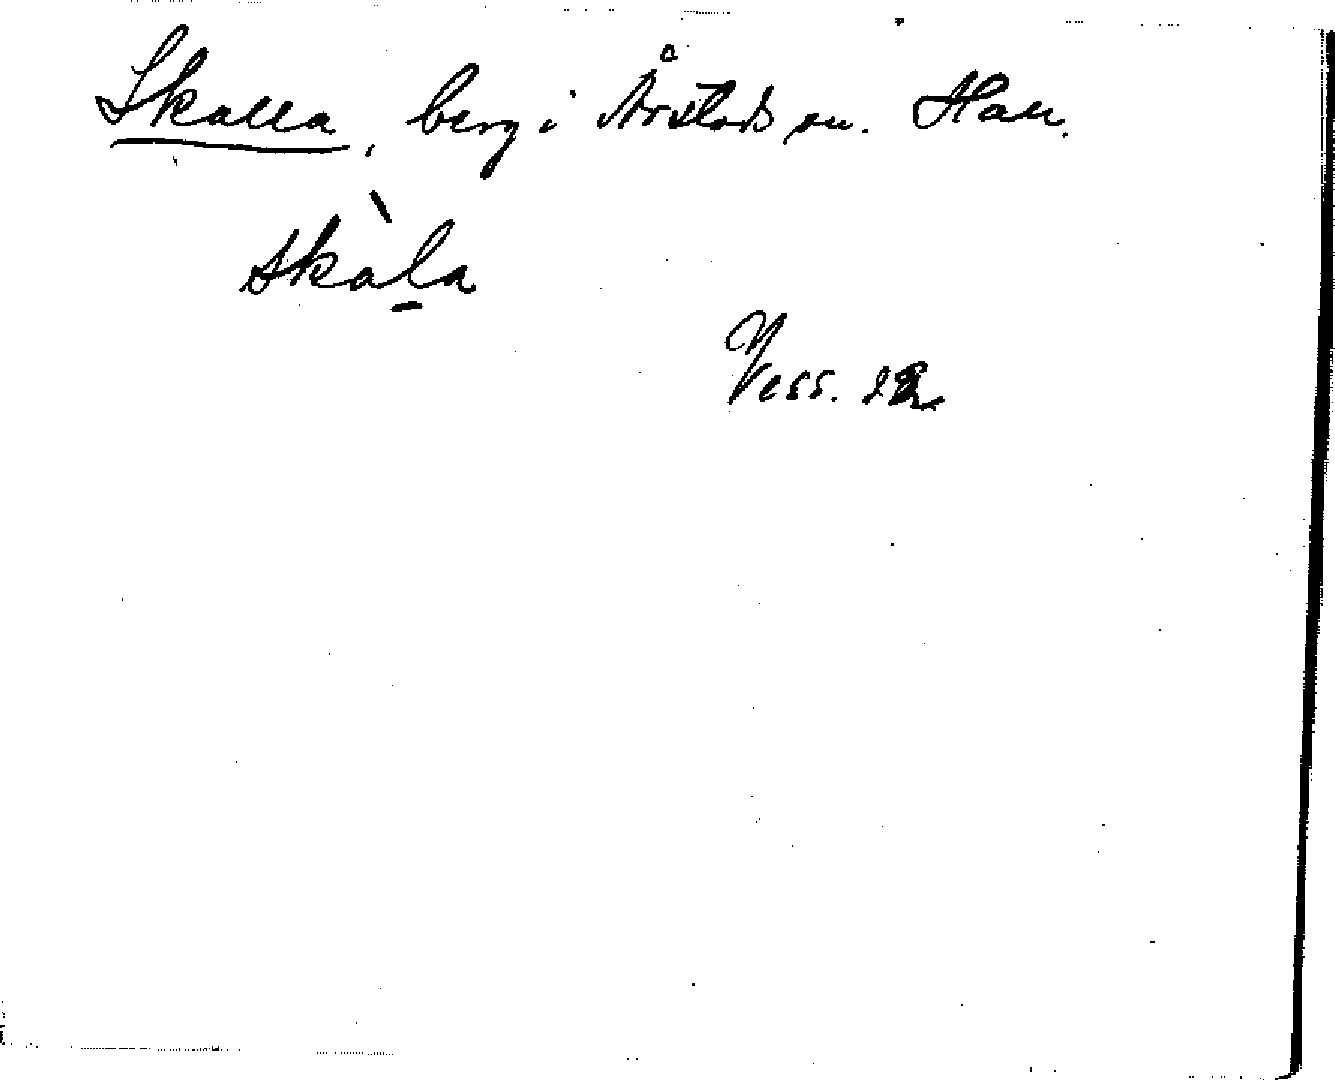 Skalla, berg i Årstads sn. Hall.
skàl̠a
Vess. 22